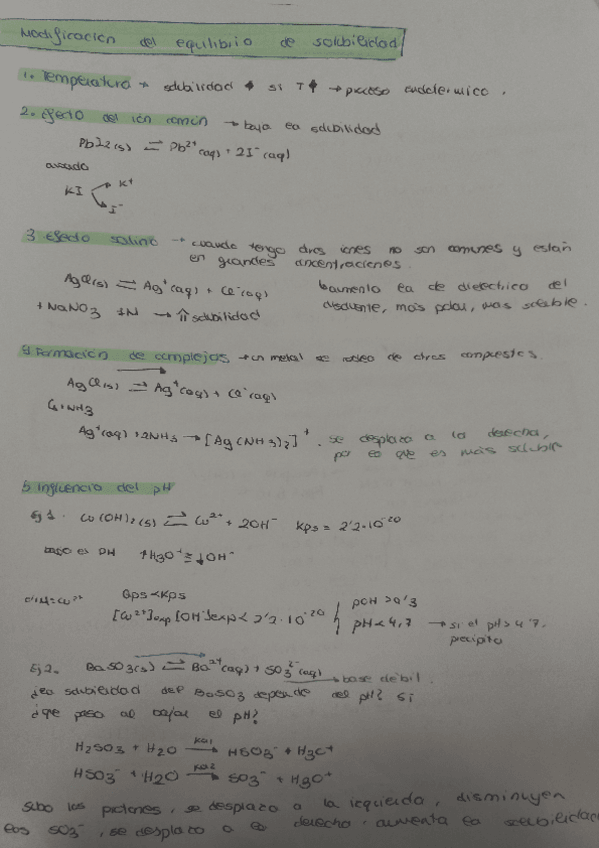 Modificación del equilibrio de solubilidad
1. Temperatura → solubilidad ↑ si T↑ → proceso endotérmico.
2. efecto del ión común → baja la solubilidad
PbI2(s) ⇌ Pb2+(aq) + 2I-(aq)
KI K+
I-
3 efecto salino → cuando tengo otros iones no son comunes y están
en grandes concentraciones.
AgCl(s) ⇌ Ag+(aq) + Cl-(aq) aumenta la de dieléctrico del
+ NaNO3 → ⇑ solubilidad disolvente, más polar, más soluble.
4 Formación de complejos → un metal se rodea de otros compuestos.
AgCl(s) ⇌ Ag+(aq) + Cl-(aq)
↳ + NH3
Ag+(aq) + 2NH3 → [Ag(NH3)2]+ . se desplaza a la derecha,
por lo que es más soluble
5 influencia del pH
Ej 1. Cu(OH)2(s) ⇌ Cu2+ + 2OH- Kps = 2'2·10-20
bajo el pH ↑H3O+ ≅ ↓OH-
Qps < Kps
[Cu2+]exp [OH-]exp < 2'2·10-20 pOH > 9'3
pH < 4,7 → si el pH > 4'7.
precipita
Ej 2. BaSO3(s) ⇌ Ba2+(aq) + SO3 2-(aq) → base débil.
¿la solubilidad del BaSO3 depende del pH? Si
¿que pasa al bajar el pH?
H2SO3 + H2O →ka1 HSO3- + H3O+
HSO3- + H2O →ka2 SO3- + H3O+
subo los protones, se desplaza a la izquierda, disminuyen
los SO3-, se desplaza a la derecha, aumenta la solubilidad